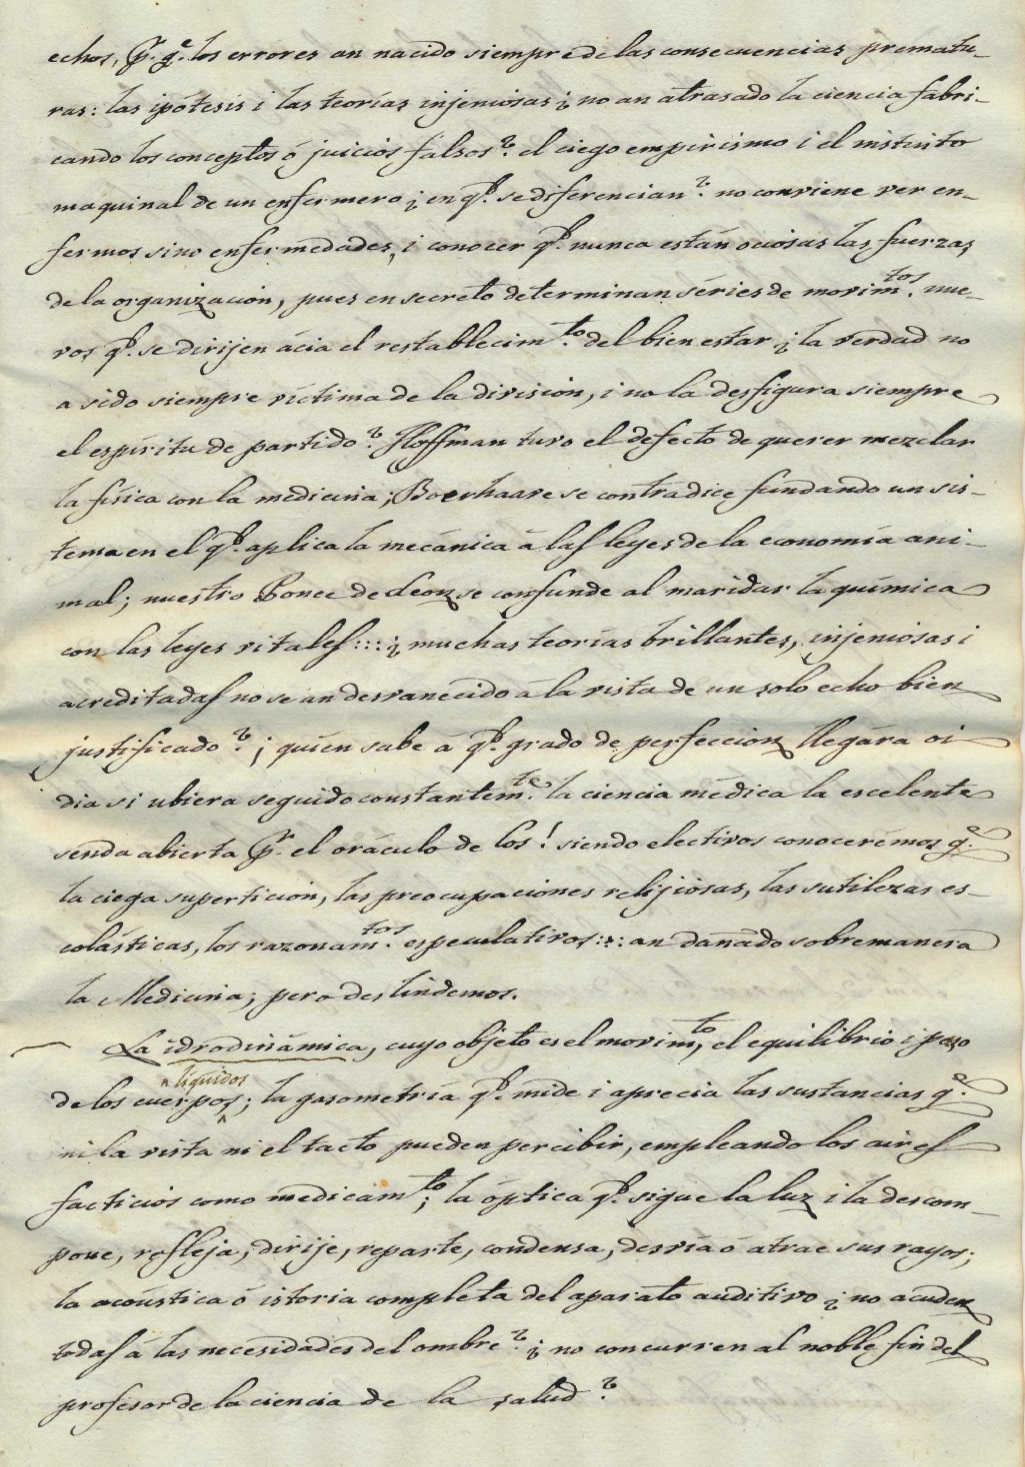 echos, pr. qe. los errores an nacido siempre de las consecuencias prematu-
ras: las ipótesis i las teorías injeniosas ¿ no an atrasado la ciencia fabri-
cando los conceptos ó juicios falsos? el ciego empirismo i el instinto
maquinal de un enfermero ¿ en qe. se diferencian? no conviene ver en-
fermos sino enfermedades, i conocer qe. nunca están ociosas las fuerzas
de la organizacion, pues en secreto determinan séries de movimtos. nue-
vos qe. se dirijen ácia el restablecimto. del bien estar ¿ la verdad no
a sido siempre víctima de la division, i no la desfigura siempre
el espíritu de partido? Hoffman tuvo el defecto de querer mezclar
la física con la medicina; Boerhaave se contradice fundando un sis-
tema en el qe. aplica la mecánica á las leyes de la economía ani-
mal; nuestro Ponce de Leon se confunde al maridar la química
con las leyes vitales:::¿ muchas teorías brillantes, injeniosas i
acreditadas no se an desvanecido á la vista de un solo echo bien
justificado? ¡ quien sabe á qe. grado de perfeccion llegára oi
dia si ubiera seguido constantemte. la ciencia médica la escelente
senda abierta pr. el oráculo de Cos! siendo electivos conocerémos qe.
la ciega superticion, las preocupaciones relijiosas, las sutilezas es-
colásticas, los razonamtos. especulativos::: an dañado sobremanera
la Medicina; pero deslindemos.
La idrodinámica, cuyo objeto es el movimto, el equilibrio i peso
de los cuerpos líquidos; la gasometría qe. mide i aprecia las sustancias qe.
ni la vista ni el tacto pueden percibir, empleando los aires
facticios como medicamto; la óptica qe. sigue la luz i la descom-
pone, refleja, dirije, reparte, condensa, desvía ó atrae sus rayos;
la acoústica ó istoria completa del aparato auditivo ¿ no acuden
todas á las necesidades del ombre? ¿ no concurren al noble fin del
profesor de la ciencia de la salud?